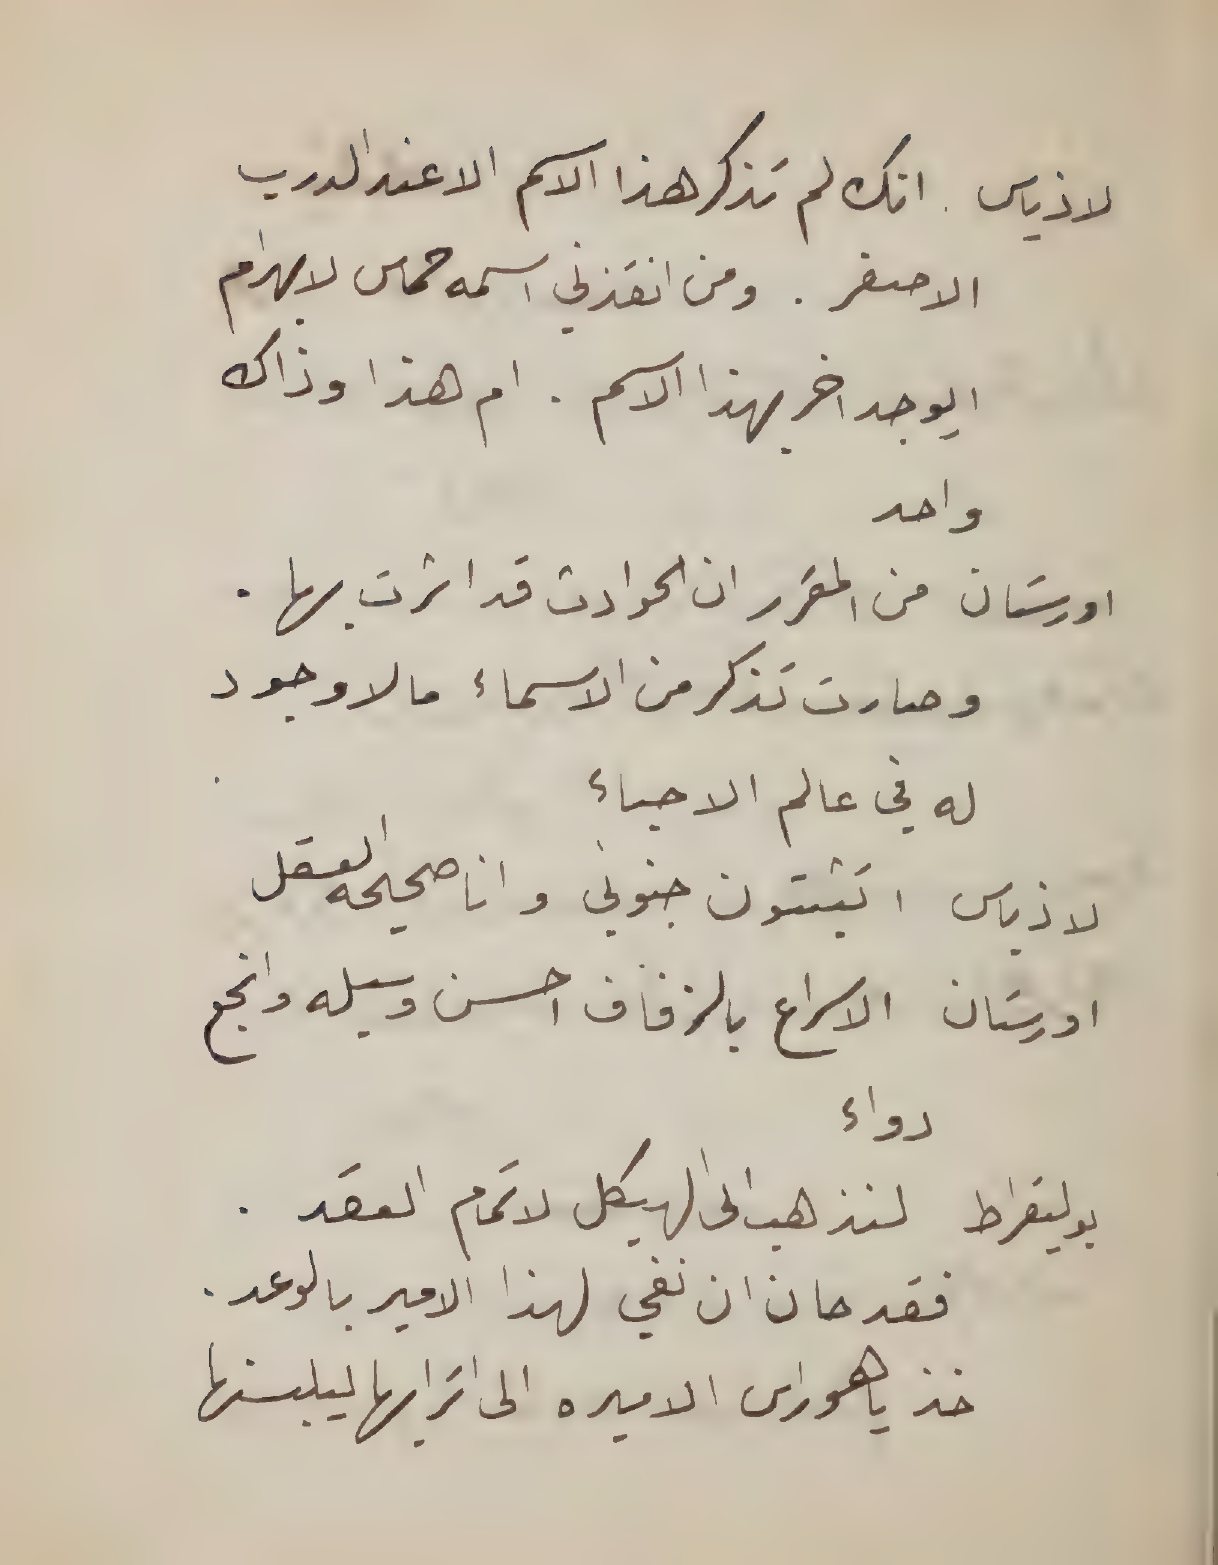 لاذياس . انك لم تذكر هذا الاسم الا عند الدرب
الاصفر . ومن انقذني اسمه حماس لا بهرام
ايوجد اخر بهذا الاسم . ام هذا وذاك
واحد
اورستان من المقرر ان الحوادث قد اثرت بها .
وصارت تذكر من الاسماء ما لا وجود
له في عالم الاحياء
لاذياس اتثبتون جنوني وانا صحيحه العقل
اورستان الاسراع بالزفاف احسن وسيله وانجع
دواء
بوليقراط لنذهب الى الهيكل لاتمام العقد .
فقد حان ان نفي لهذا الامير بالوعد .
خذ يا هوراس الاميره الى اترابها ليلبسنها